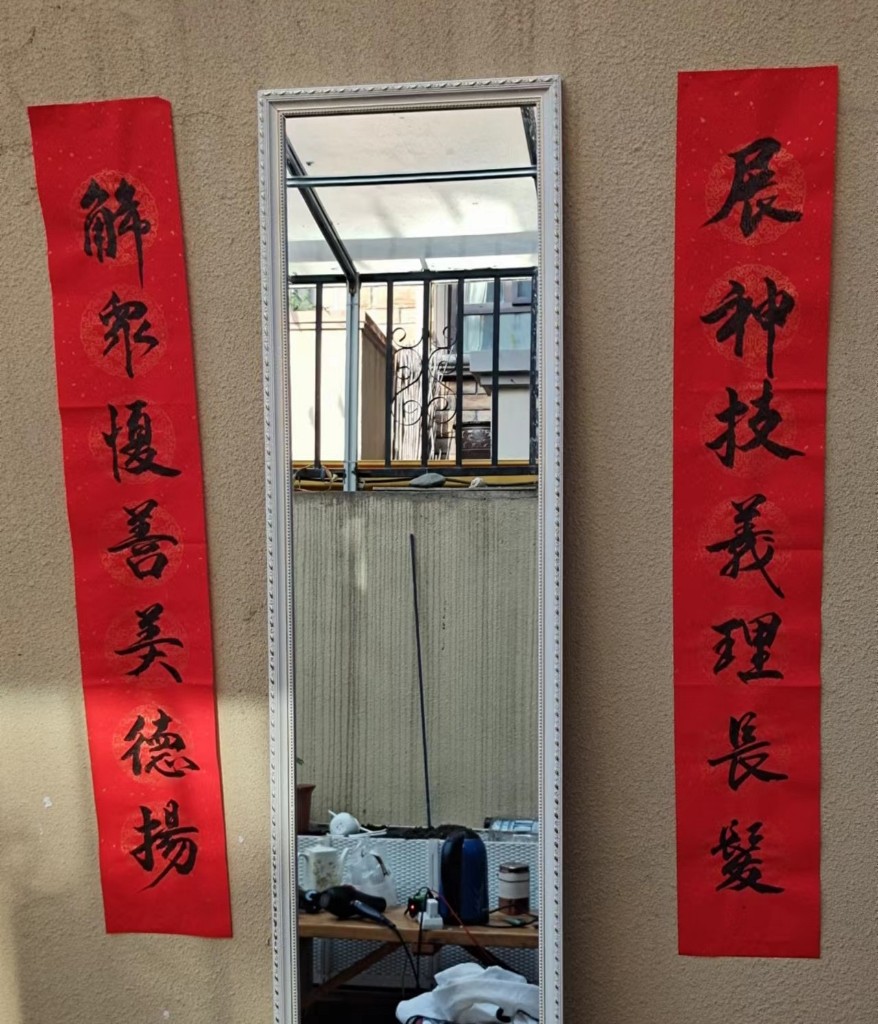 展神技義理長髮
解眾懮善美德揚